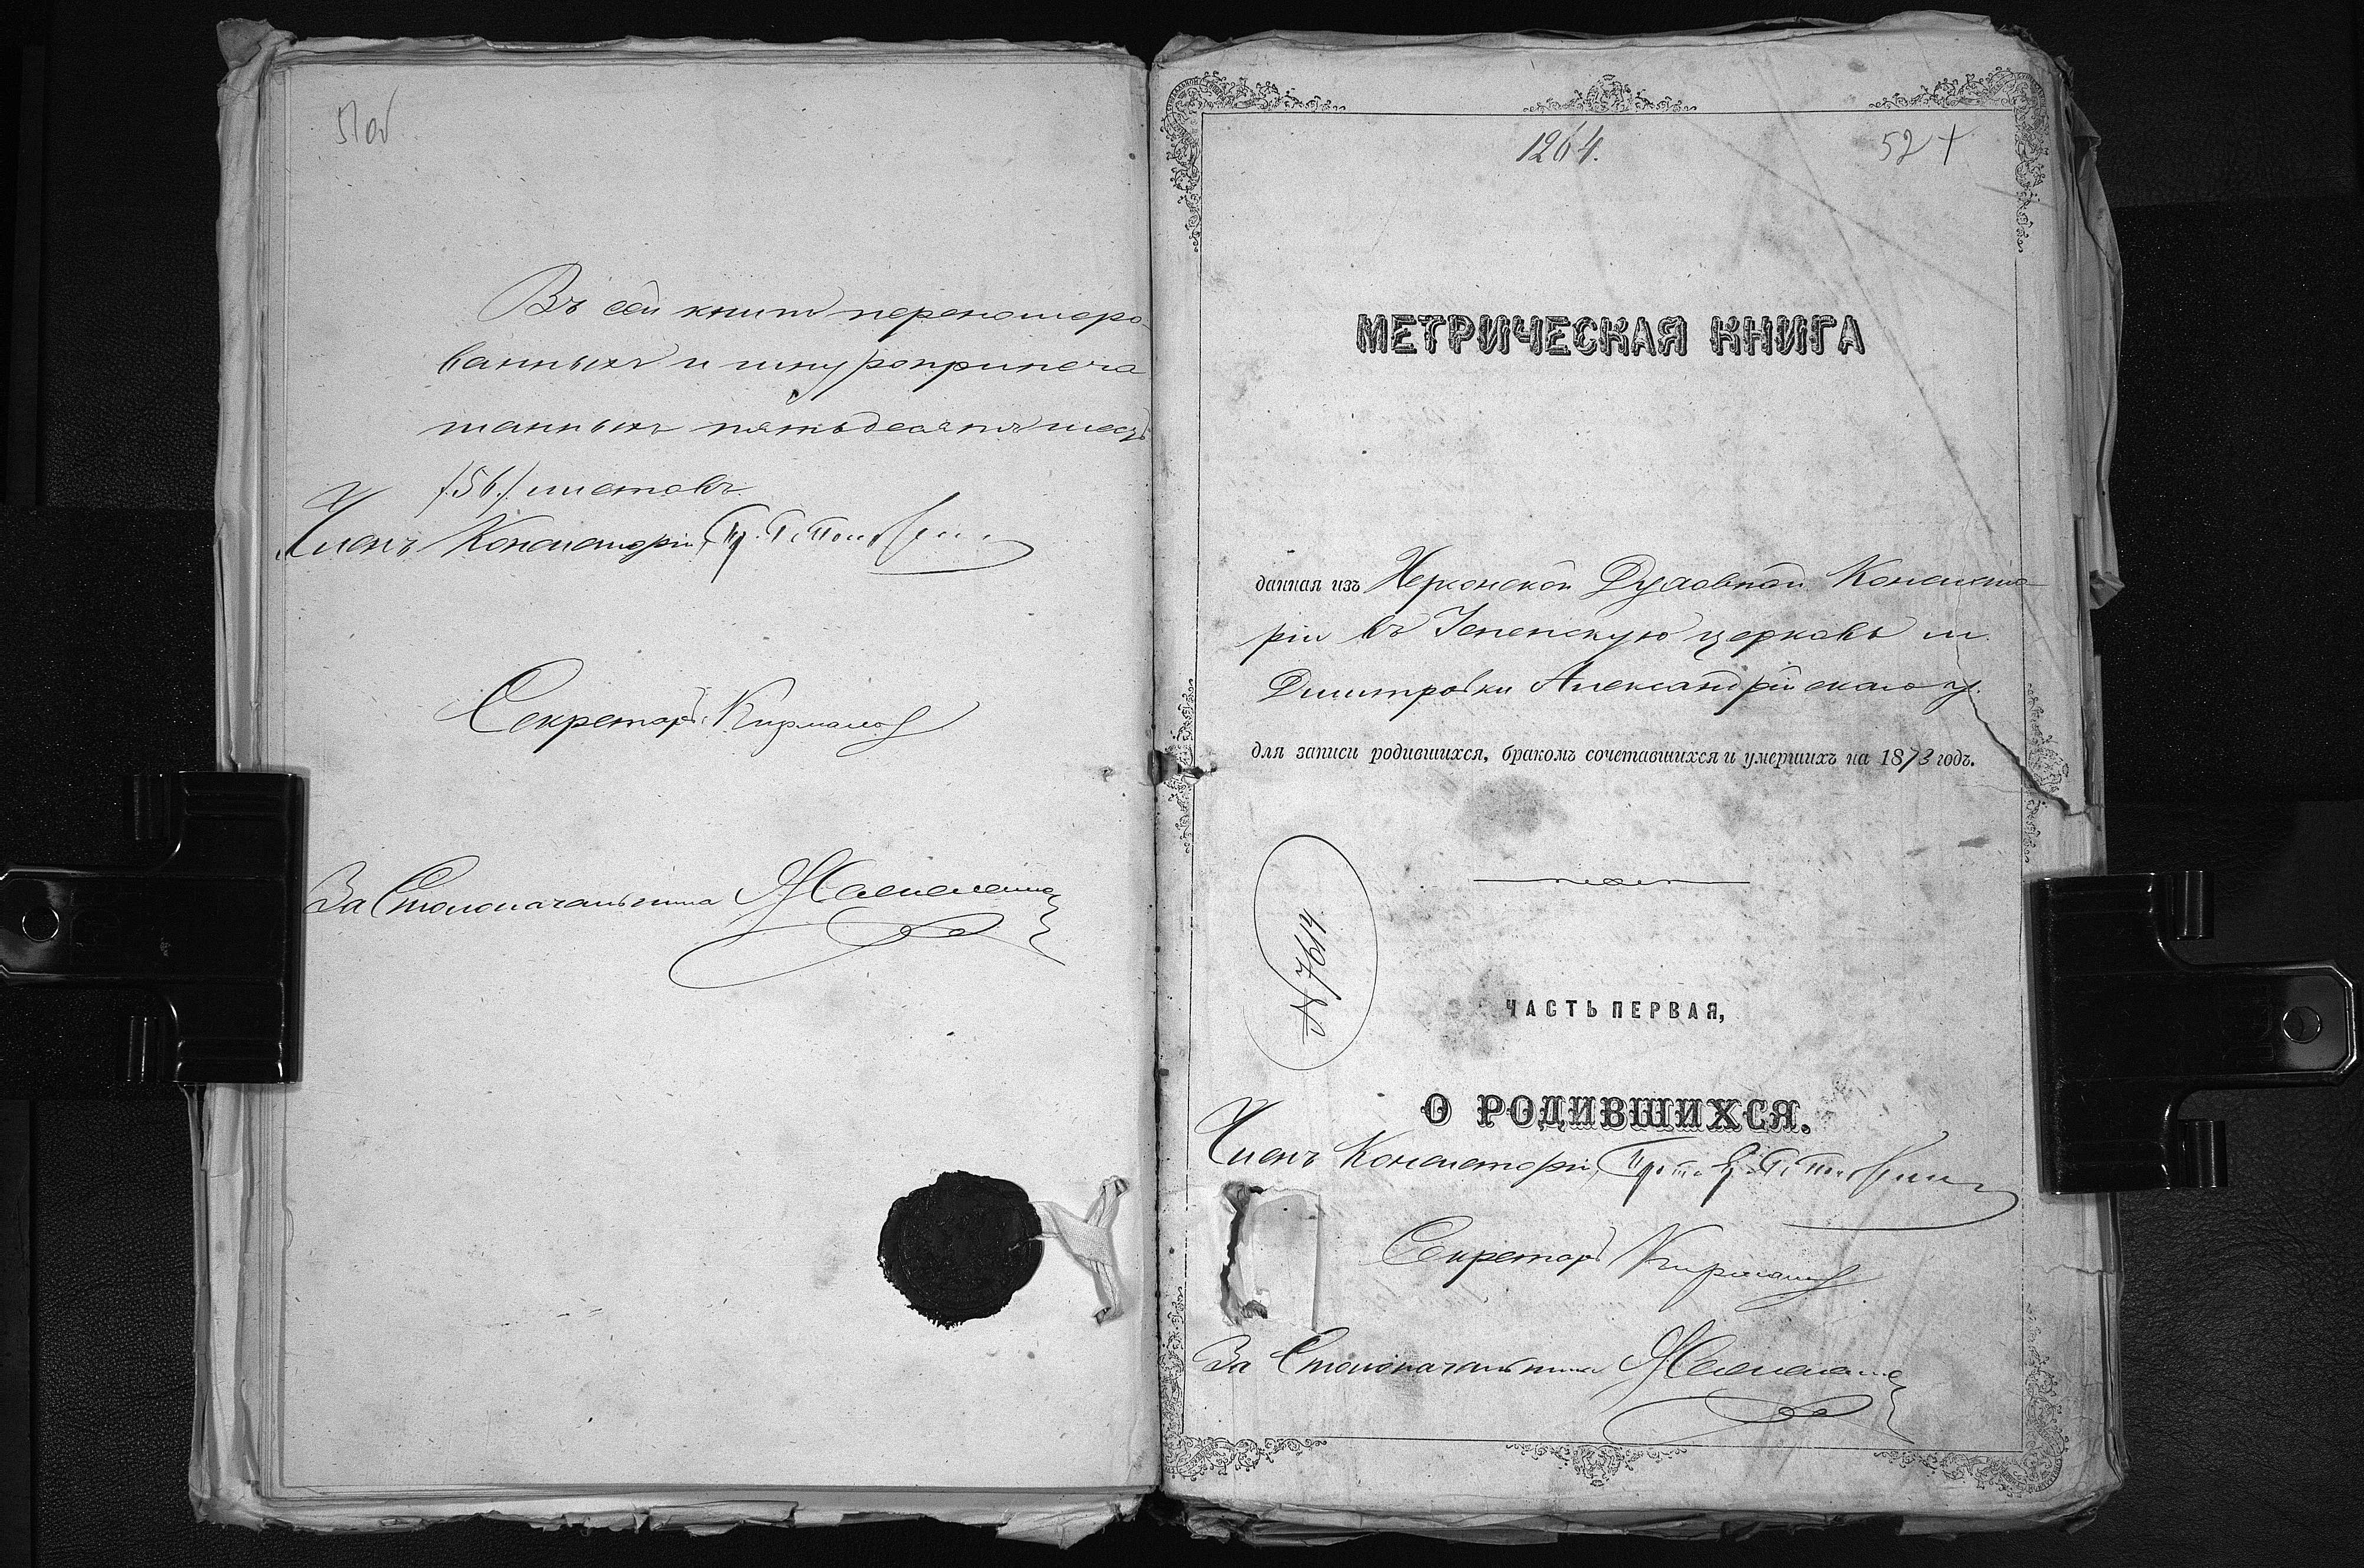 51 об
Въ сей книгѣ переномеро-
ванныхъ и шнуроприпеча
танныхъ пятьдесятъ шесть
/56./ листовъ.
Членъ Консисторіи, Пр.
Секретарь
За Столоначальника
1264.
52 +
МЕТРИЧЕСКАЯ КНИГА
данная изъ Херсонской Духовной Консисто
ріи въ Успенскую церковь м.
Дмитровки Александрійскаго у.
для записи родившихся, бракомъ сочетавшихся и умершихъ на 1873 годъ.
№ 7614
ЧАСТЬ ПЕРВАЯ,
О РОДИВШИХСЯ.
Членъ Консисторіи,
Секретарь
За Столоначальника